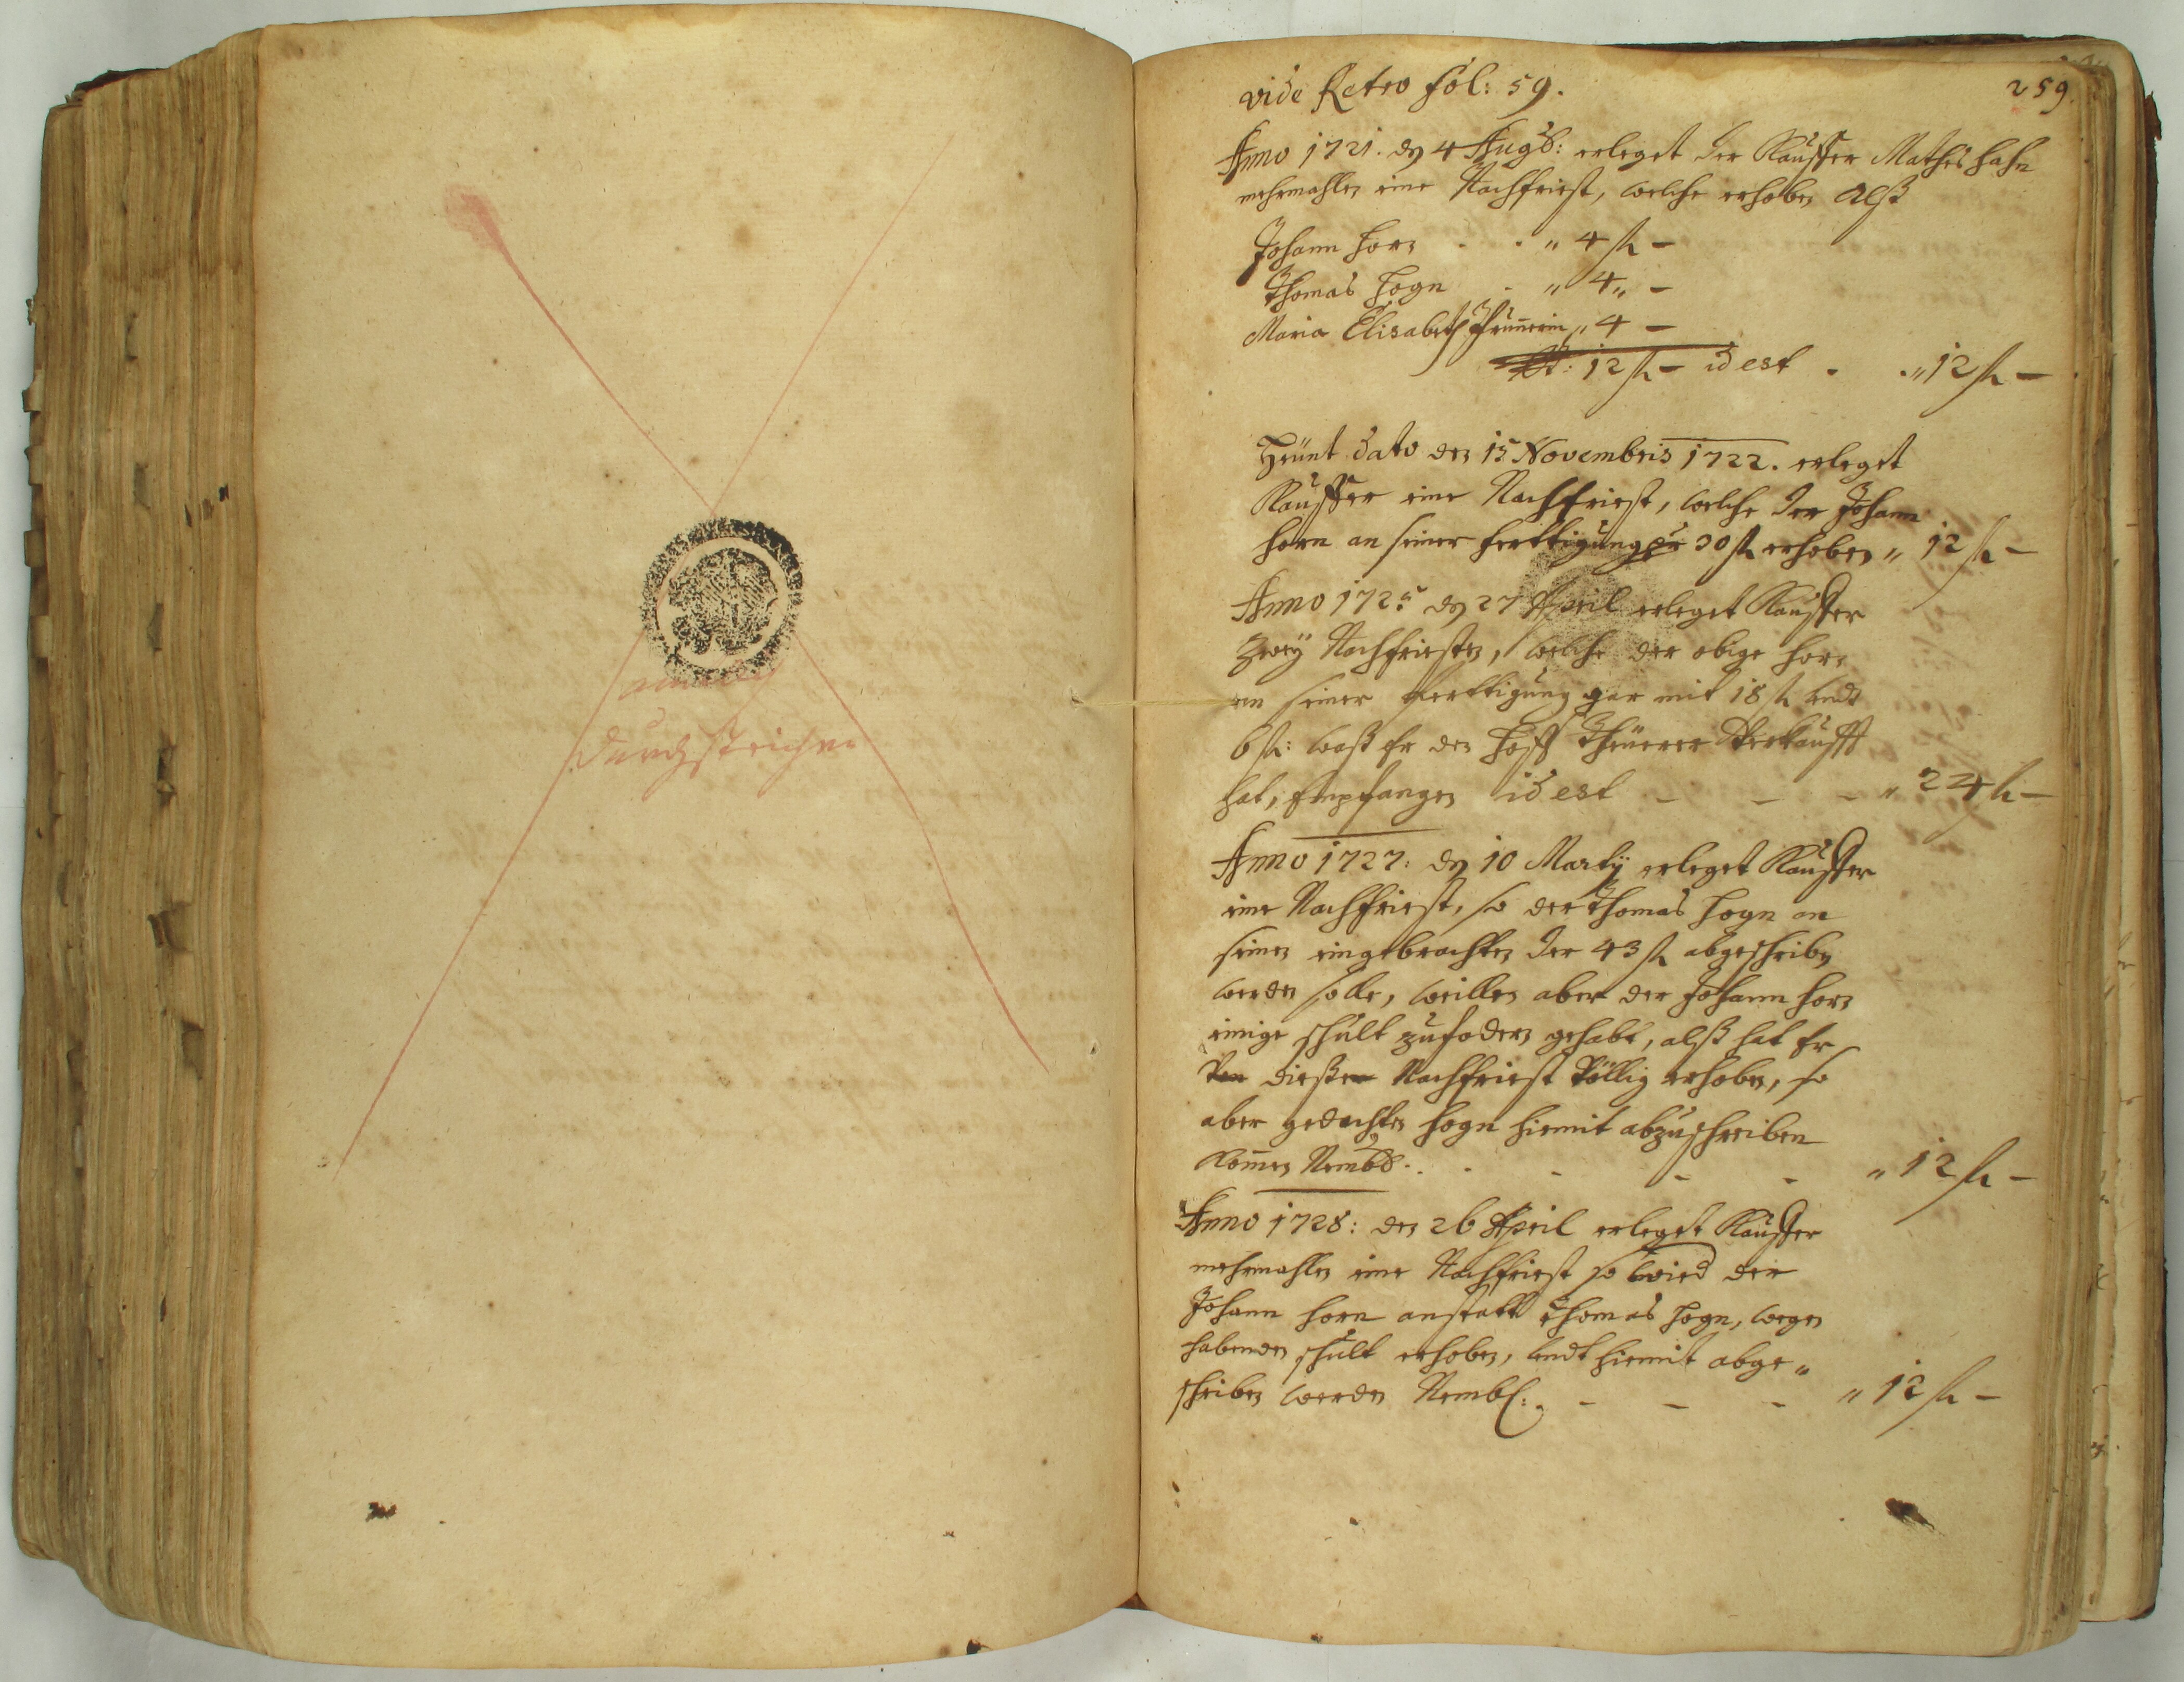 amtlich
durchstrichen
vide Retro fol: 59.
259.
Anno 1721. dn 4 Augs: erleget der Kauffer Mathes Hahn
mehrmahlen eine Nachfriest, welche erhoben Alß
Johann Horn . . " 4 fl –
Thomas Hogn . " 4 " –
Maria Elisabeth " 4 –
12 fl – id est . . " 12 fl –
Heünt dato den 15 Novembris 1722. erleget
Kauffer eine Nachfriest, welche der Johann
Horn an seiner ferttigung pr 30 fl erhoben " 12 fl –
Anno 1725 dn 27 April erleget Kauffer
Zweÿ Nachfriesten, welche der obige Horn
an seiner ferttigung gar mit 18 fl undt
6 fl: waß Er den Hoff Verkaufft
hat, Empfangen id est – – – " 24 fl –
Anno 1727: dn 10 Martÿ erleget Kauffer
eine Nachfriest, so der Thomas Hogn an
seinen eingebrachten der 43 fl abgeschriben
werden solle, weillen aber der Johann Horn
einige schult zufodern gehabt, alß hat Er
Von dießer Nachfriest Völlig erhoben, so
aber gedachten Hogn hiemit abzuschreiben
Komen Nembl: . – – – " 12 fl –
Anno 1728: den 26 April erleget Kauffer
mehrmahlen eine Nachfriest so wird der
Johann Horn anstatt Thomas Hogn, wegen
habenden schult erhoben, undt hiemit abge"
schriben werden Nembl: . – – – " 12 fl –